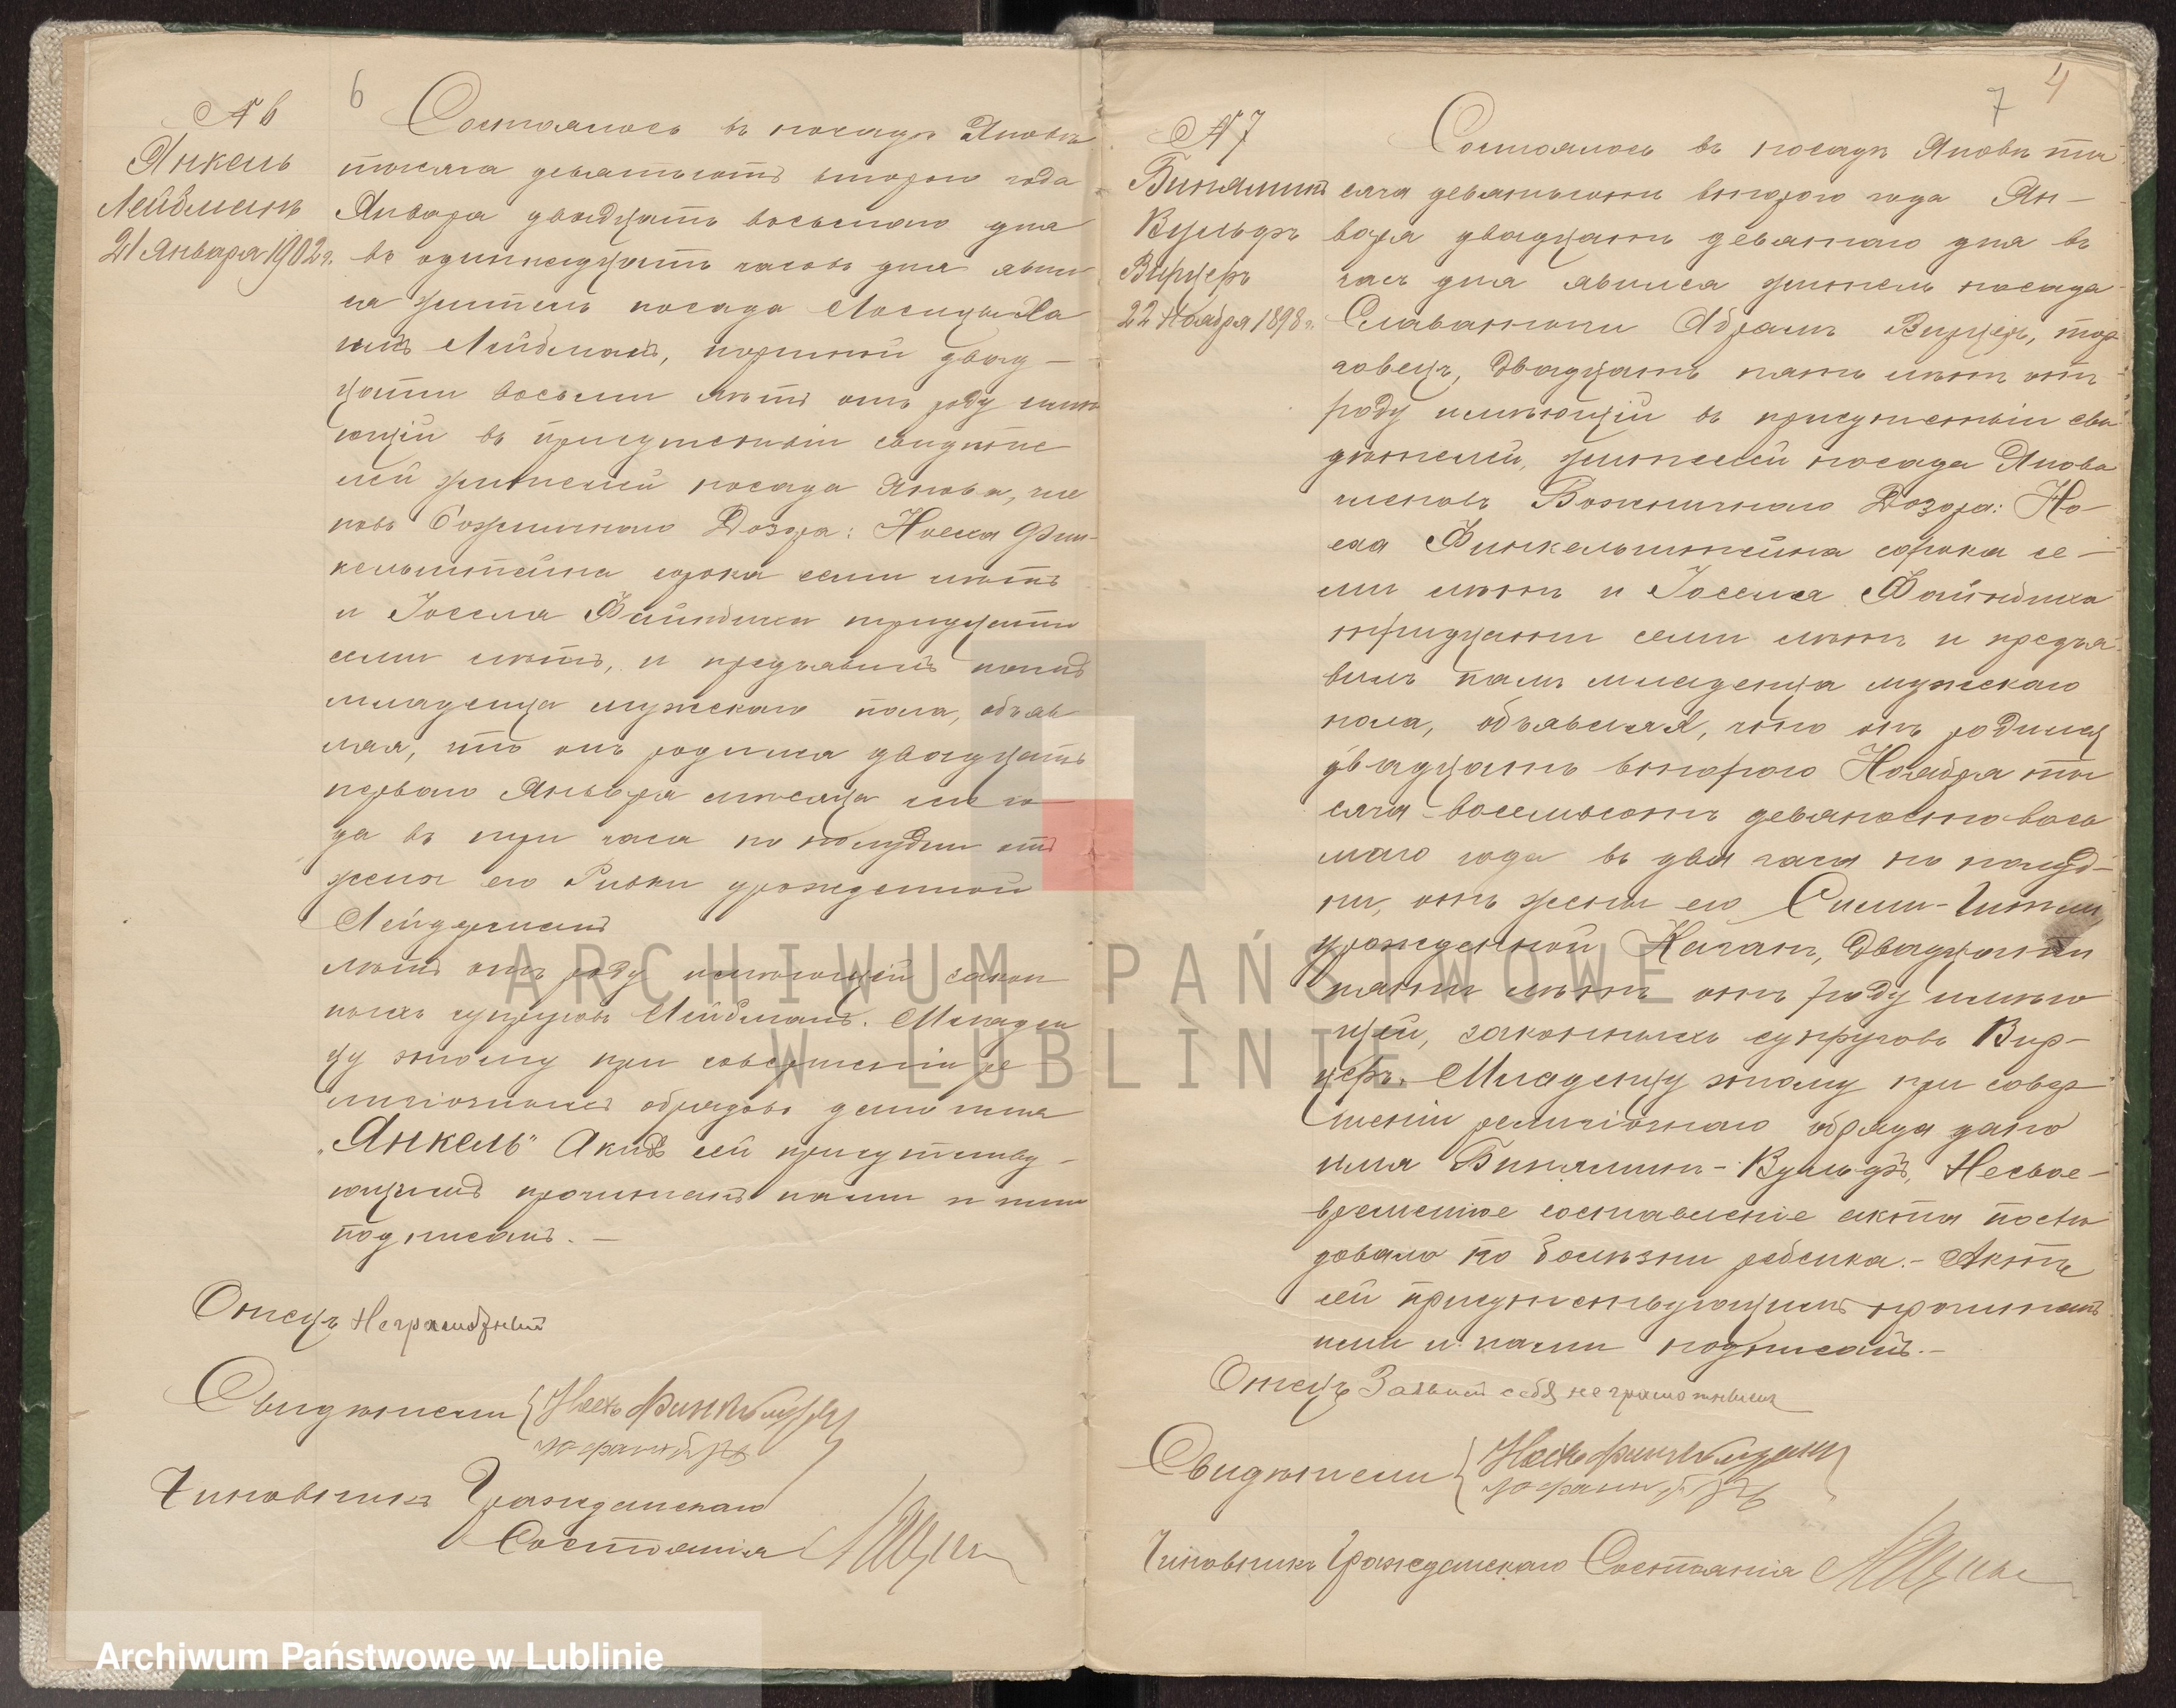 6
№ 6
Янкель
Лейбманъ
21 Января 1902 г.
Состоялось въ посадѣ Яновѣ
тысяча девятьсотъ второго года
Января двадцать восьмого дня
въ одиннадцать часовъ дня явил
ся житель посада Лосицы Ха
имъ Лейбманъ, портной двад-
цати восьми лѣтъ отъ роду имѣ
ющій въ присутствіи свидѣте
лей жителей посада Янова, чле
новъ Божничнаго Дозора: Носка Фин-
кельштейна сорока семи лѣтъ
и Іосела тридцати
семи лѣтъ, и предъявилъ намъ
младенца мужскаго пола, объяв
ляя, что онъ родился двадцать
перваго Января мѣсяца сего го
да въ три часа по полудни отъ
жены его Ривки урожденной
Лейдерманъ
лѣтъ отъ роду имѣющей закон
ныхъ супруговъ Лейбманъ. Младен
цу этому при совершеніи ре
лигіозныхъ обрядовъ дано имя
„Янкель" Актъ сей присутству-
ющимъ прочитанъ нами и ими
подписанъ. —
Отецъ Неграмотный
Свидѣтели {
Чиновникъ Гражданскаго
Состоянія
7 4
№ 7
Биньяминъ
Вульфъ
Вирцеръ
22 Ноября 1898 г.
Состоялось въ посадѣ Яновѣ ты
сяча девятьсотъ второго года Ян-
варя двадцать девятаго дня въ
часъ дня явился житель посада
Славатичи Абрамъ Вирцеръ, тор
говецъ, двадцать пять лѣтъ отъ
роду имѣющій въ присутствіи сви
дѣтелей, жителей посада Янова
членовъ Божничнаго Дозора: Но-
сха Финкельштейна сорока се-
ми лѣтъ и Іоселя
тридцати семи лѣтъ и предъя
вилъ намъ младенца мужскаго
пола, объявляя, что онъ родился
двадцать второго Ноября ты
сяча восемьсотъ девяносто вось
маго года въ два часа по полуд-
ни, отъ жены его
урожденной Каганъ, двадцати
пяти лѣтъ отъ роду имѣю
щей, законныхъ супруговъ Вир-
церъ. Младенцу этому при совер
шеніи религіознаго обряда дано
имя Биньяминъ-Вульфъ, Несвое-
временное составленіе акта послѣ
довало по болѣзни ребенка.- Актъ
сей присутствующимъ прочитанъ
ими и нами подписанъ.-
Отецъ Заявилъ себя неграмотнымъ
Свидѣтели {
Чиновникъ Гражданскаго Состоянія
ARCHIWUM PAŃSTWOWE
W LUBLINIE
Archiwum Państwowe w Lublinie